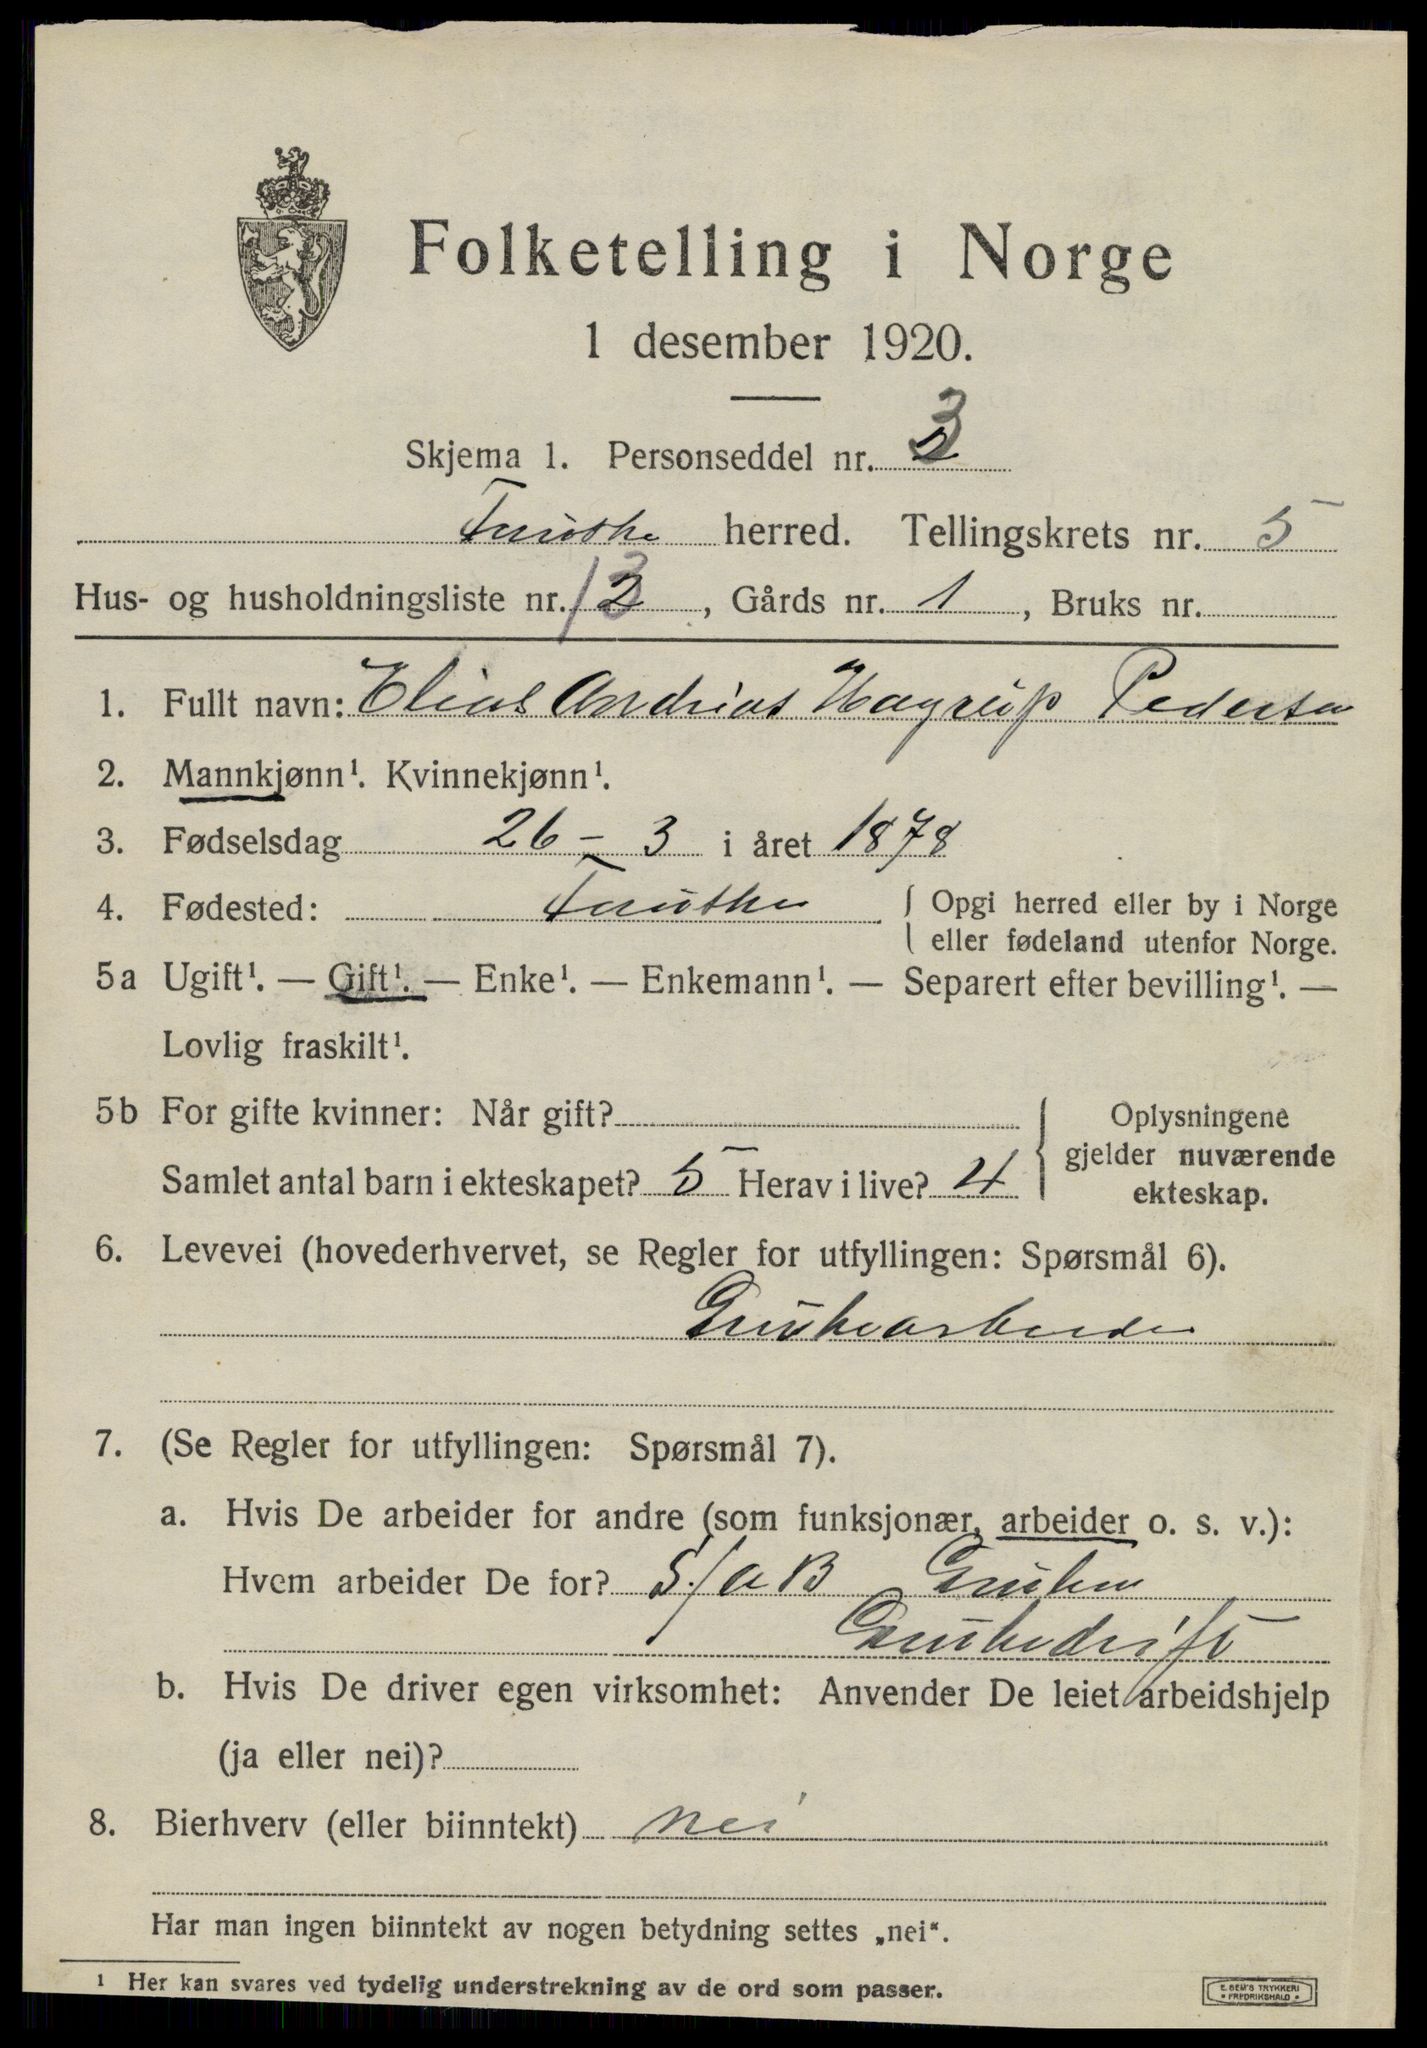 Folketelling i Norge
1 desember 1920.
Skjema 1. Personseddel nr. 3
Fauske herred. Tellingskrets nr. 5
Hus- og husholdningsliste nr. 13, Gårds nr. 1, Bruks nr.
1. Fullt navn: Elias Andrias Hagrup Pedersen
2. Mannkjønn¹. Kvinnekjønn¹.
3. Fødselsdag 26 - 3 i året 1878
4. Fødested: Fauske { Opgi herred eller by i Norge
eller fødeland utenfor Norge.
5a Ugift¹. — Gift¹. — Enke¹. — Enkemann¹. — Separert efter bevilling¹. —
Lovlig fraskilt¹.
5b For gifte kvinner: Når gift?
Samlet antal barn i ekteskapet? 5 Herav i live? 4
Oplysningene
gjelder nuværende
ekteskap.
6. Levevei (hovederhvervet, se Regler for utfyllingen: Spørsmål 6).
Grubearbeider
7. (Se Regler for utfyllingen: Spørsmål 7).
a. Hvis De arbeider for andre (som funksjonær, arbeider o. s. v.):
Hvem arbeider De for? S/aB Gruben
Grubedrift
b. Hvis De driver egen virksomhet: Anvender De leiet arbeidshjelp
(ja eller nei)?
8. Bierhverv (eller biinntekt) nei
Har man ingen biinntekt av nogen betydning settes „nei“.
¹ Her kan svares ved tydelig understrekning av de ord som passer.
E. SEM'S TRYKKERI
• FREDRIKSHALD •